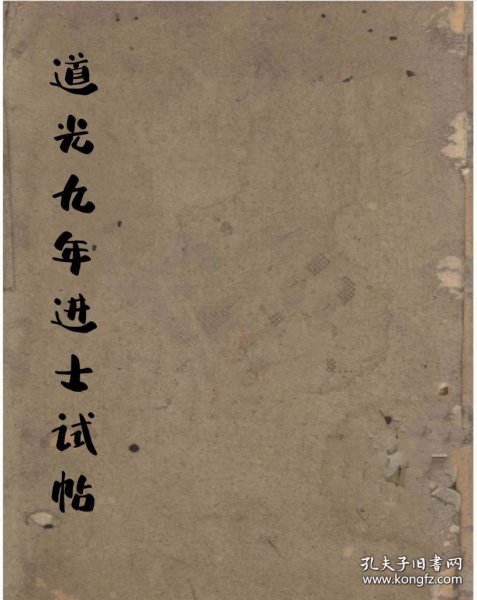 道光九年进士试帖
孔夫子旧书网
www.kongfz.com